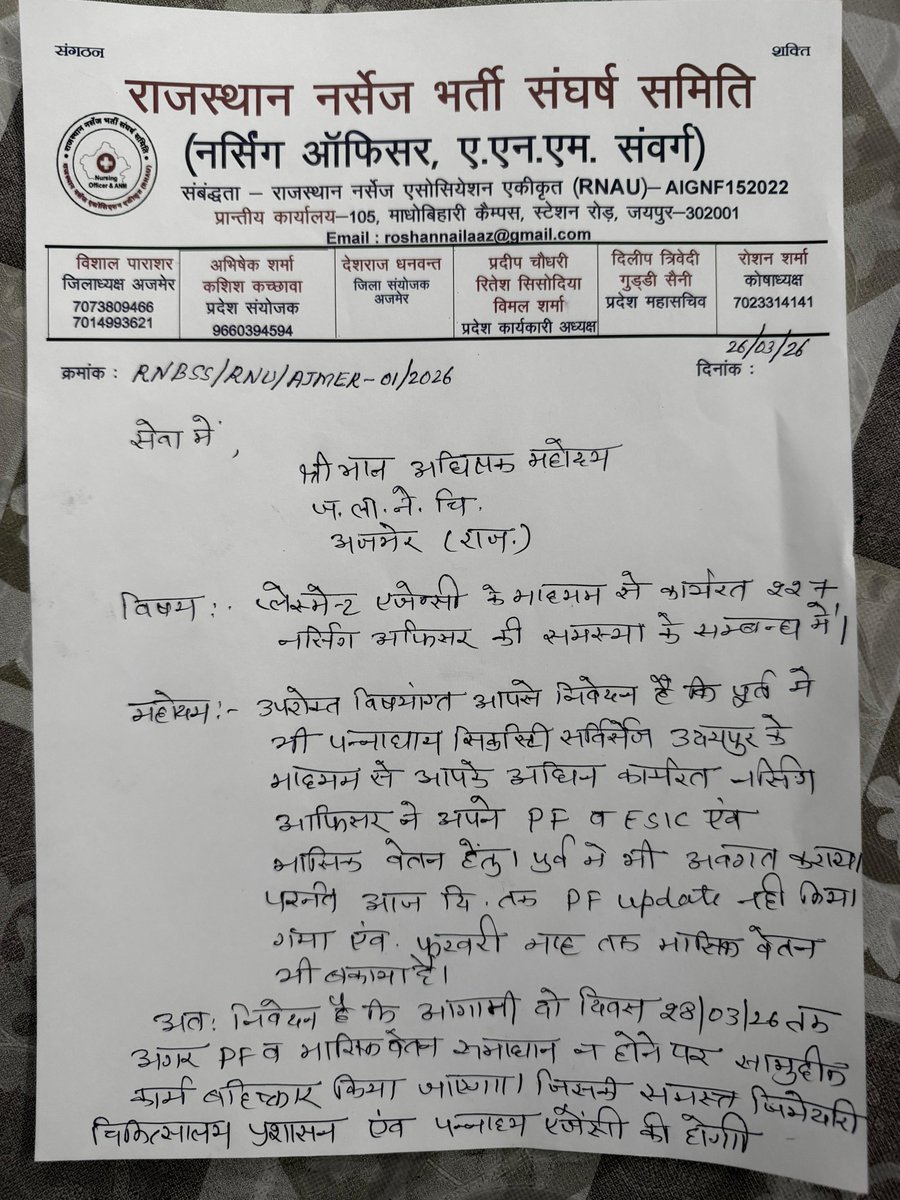 संगठन
शक्ति
राजस्थान नर्सेज भर्ती संघर्ष समिति
(नर्सिंग ऑफिसर, ए.एन.एम. संवर्ग)
संबंद्धता – राजस्थान नर्सेज एसोसियेशन एकीकृत (RNAU)– AIGNF152022
प्रान्तीय कार्यालय–105, माधोबिहारी कैम्पस, स्टेशन रोड़, जयपुर–302001
Email : roshannailaaz@gmail.com
राजस्थान नर्सेज भर्ती संघर्ष समिति
Nursing
Officer & ANM
विशाल पाराशर
जिलाध्यक्ष अजमेर
7073809466
7014993621
अभिषेक शर्मा
कशिश कच्छावा
प्रदेश संयोजक
9660394594
देशराज धनवन्त
जिला संयोजक
अजमेर
प्रदीप चौधरी
रितेश सिसोदिया
विमल शर्मा
प्रदेश कार्यकारी अध्यक्ष
दिलीप त्रिवेदी
गुड्डी सैनी
प्रदेश महासचिव
रोशन शर्मा
कोषाध्यक्ष
7023314141
क्रमांक : RNBSS/RNU/AJMER-01/2026
दिनांक : 26/03/26
सेवा में,
श्रीमान अधिषक महोदय
ज. ला. ने. चि.
अजमेर (राज.)
विषय :- प्लेसमेन्ट एजेन्सी के माध्यम से कार्यरत 227
नर्सिंग आफिसर की समस्या के सम्बन्ध में।
महोदय :- उपरोक्त विषयांगत आपसे निवेदन है कि पूर्व मे
भी पन्नाधाय सिक्युरिटी सर्विसेज उदयपुर के
माध्यम से आपके अधिन कार्यरत नर्सिंग
आफिसर ने अपने PF व ESIC एंव
मासिक वेतन हेतु। पुर्व मे भी अवगत कराया।
परन्तु आज दि. तक PF update नही किया
गया एंव. फरवरी माह तक मासिक वेतन
भी बकाया है।
अत: निवेदन है कि आगामी दो दिवस 28/03/26 तक
अगर PF व मासिक वेतन समाधान न होने पर सामुहीक
कार्य बहिष्कार किया जाएगा। जिसकी समस्त जिमेदारी
चिकित्सालय प्रशासन एंव पन्नाधय एजेंसी की होगी